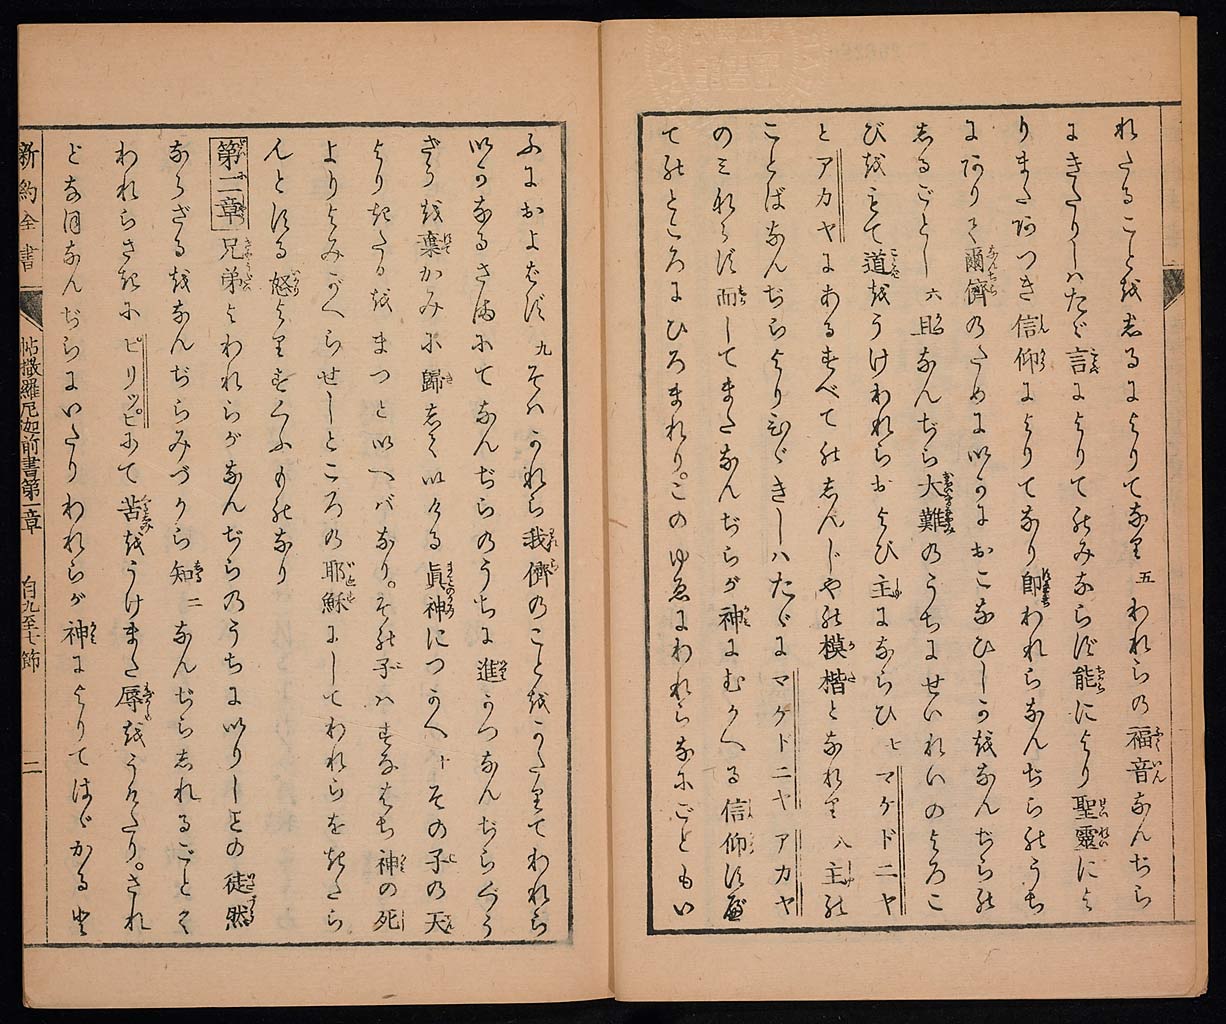 れたることを志るによりてなり 五 われらの福音なんぢら
にきたりしハたゞ言によりてのみならず能により聖靈によ
りまたあつき信仰によりてなり即われらなんぢらのうち
にありて爾儕のために以かにおこなひしかをなんぢらの
志るごとし 六 且なんぢら大難のうちにせいれいのよろこ
びをもて道をうけわれらおよび主にならひ 七 マケドニヤ
とアカヤにあるすべての志んじやの模楷となれり 八 主の
ことばなんぢらよりひゞきしハたゞにマケドニヤアカヤ
のミならず而してまたなんぢらが神にむかへる信仰
てのところにひろまれり。このゆゑにわれらなにごともい
ふにおよばず 九 そハかれら我儕のことをかたりてわれら
以かなるさまにてなんぢらのうちに進かつなんぢらぐう
ざうを棄かみに歸志て以ける眞神につかへ 十 その子の天
よりきたるをまつと以へバなり。その子ハすなはち神の死
よりよみがへらせしところの耶穌にしてわれらをきたら
んとする怒よりすくふものなり
第二章 兄弟よわれらがなんぢらのうちに以りしことの徒然
ならざるをなんぢらみづから知 二 なんぢら志れるごとく
われらさきにピリッピにて苦をうけまた辱をうけたり。され
どなほなんぢらにいたりわれらが神によりてはゞかると
新約全書 帖撒羅尼迦前書第一章 自九至十節 二